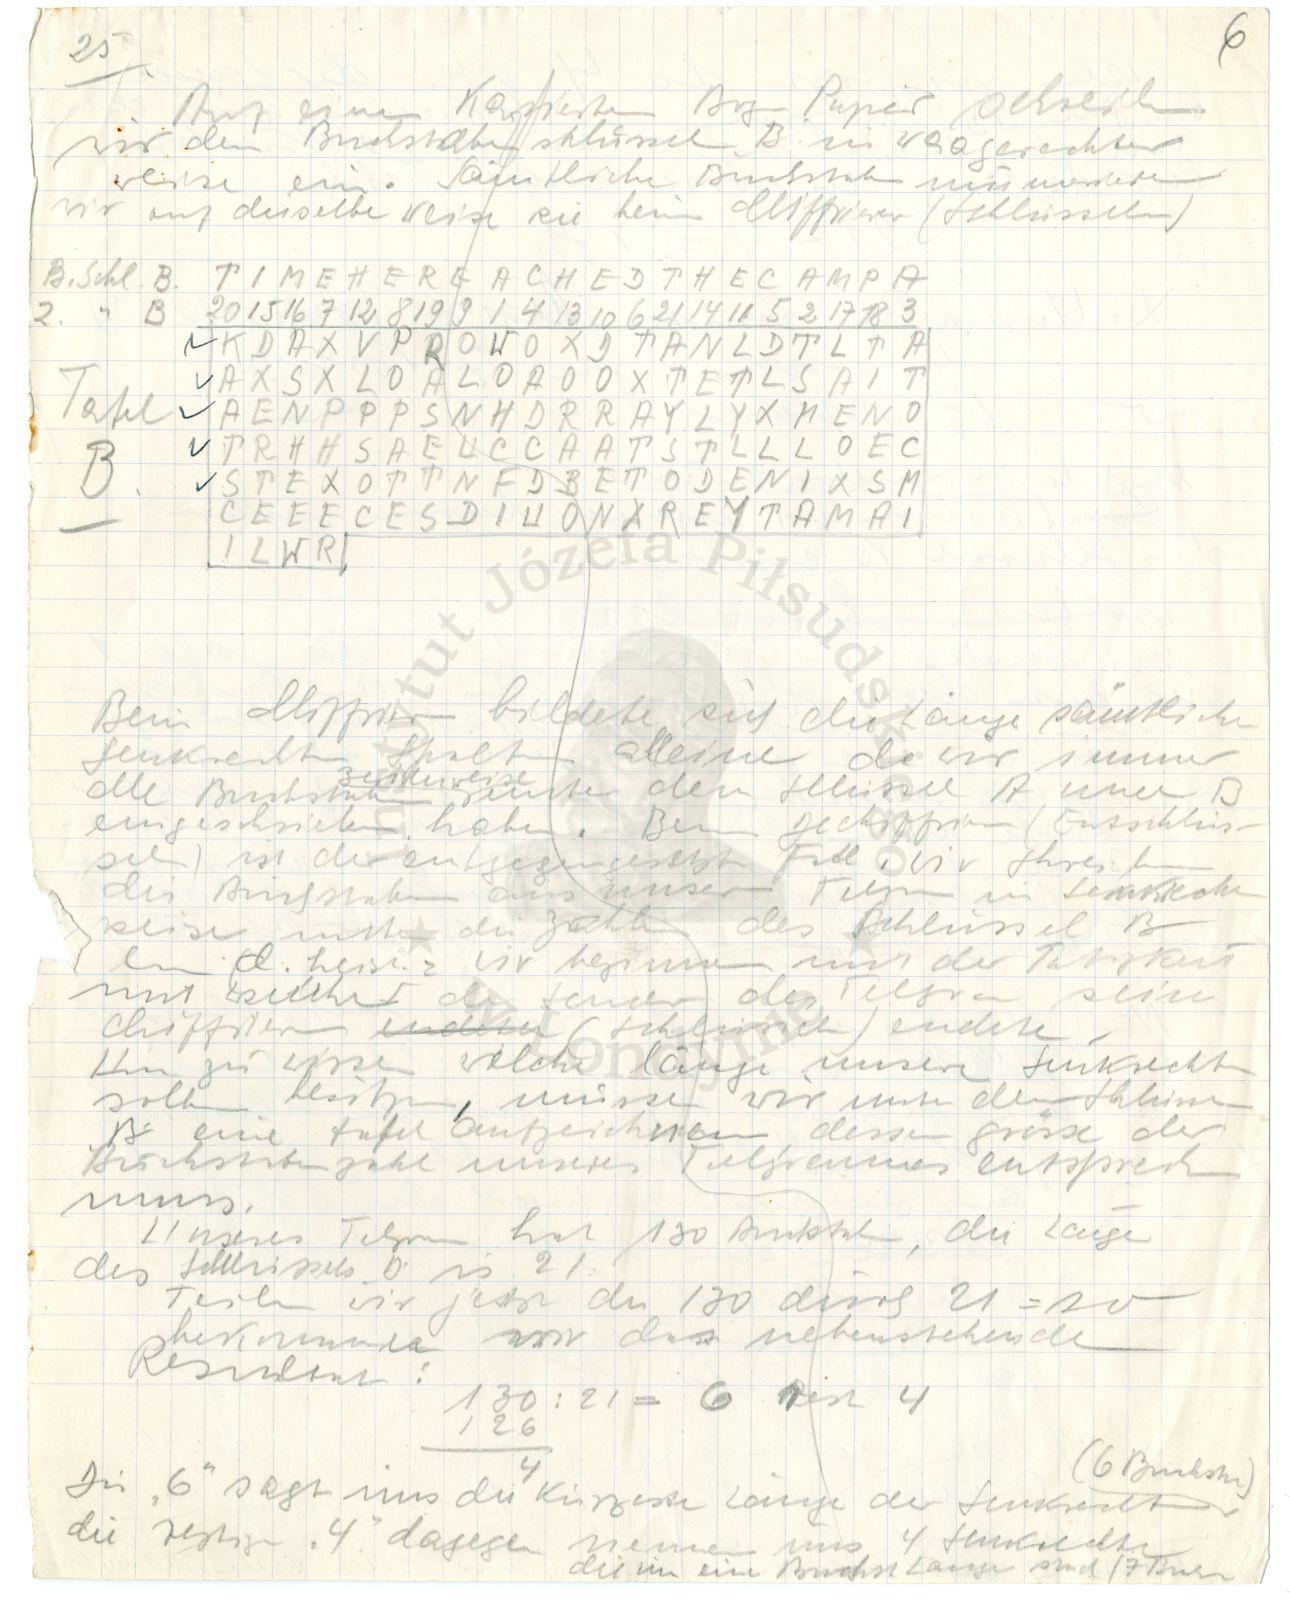 25
6
Auf einen Karrierten Bog Papier schreiben
wir den Buchstabenschlüssel B in waagerechter
weise ein. Sämtliche Buchstaben numerieren
wir auf dieselbe Weise wie beim Chiffrieren (Schlüsseln)
B. Schl. B. T I M E H E R E A C H E D T H E C A M P A
2. " B 20 15 16 7 12 8 19 9 1 4 13 10 6 21 14 11 5 2 17 18 3
K D A X V P R O W O X D T A N L D T L T A
A X S X L O A L O A O O X T E T L S A I T
Tafel A E N P P P S N H D R R A Y L Y X M E N O
B. T R H H S A E U C C A A T S T L L L O E C
S T E X O T T N F D B E T O D E N I X S M
C E E E C E S D I U O N X R E Y T A M A I
I L W R
Beim Chiffrieren bildete sich die Länge sämtlicher
senkrechten Spalten alleine da wir immer
alle Buchstaben zeilenweise unter dem Schlüssel A und B
eingeschrieben haben. Beim Dechiffrieren (Entschlüs-
seln) ist der entgegengesetzte Fall, wir schreiben
die Buchstaben aus unserem Telgram in senkrechter
weise unter die Zahlen des Schlüssel B
d. heist: wir beginnen mit der Tätigkeit
mit welcher der Sender des Telgram seine
chiffrieren endeten (Schlüsseln) endete.
Um zu wissen welche länge unsere Senkrechten
sollen besitzen, müssen wir unter dem Schlüssel
B eine Tafel aufzeichnen dessen grösse der
Buchstabenzahl unseres Telgrammes entsprechen
muss.
Unseres Telgram hat 130 Buchstaben, die Länge
des Schlüssels B is 21.
Teilen wir jetzt die 130 durch 21 = so
bekommen wir das nebenstehende
Resultat:
130 : 21 = 6 Rest 4
126
4
(6 Buchstaben)
Die "6" sagt uns die Kürzeste Länge der Senkrechten
die restigen "4" dagegen nennen uns 4 Senkrechte
die um eine Buchst Länge sind (7 Buch